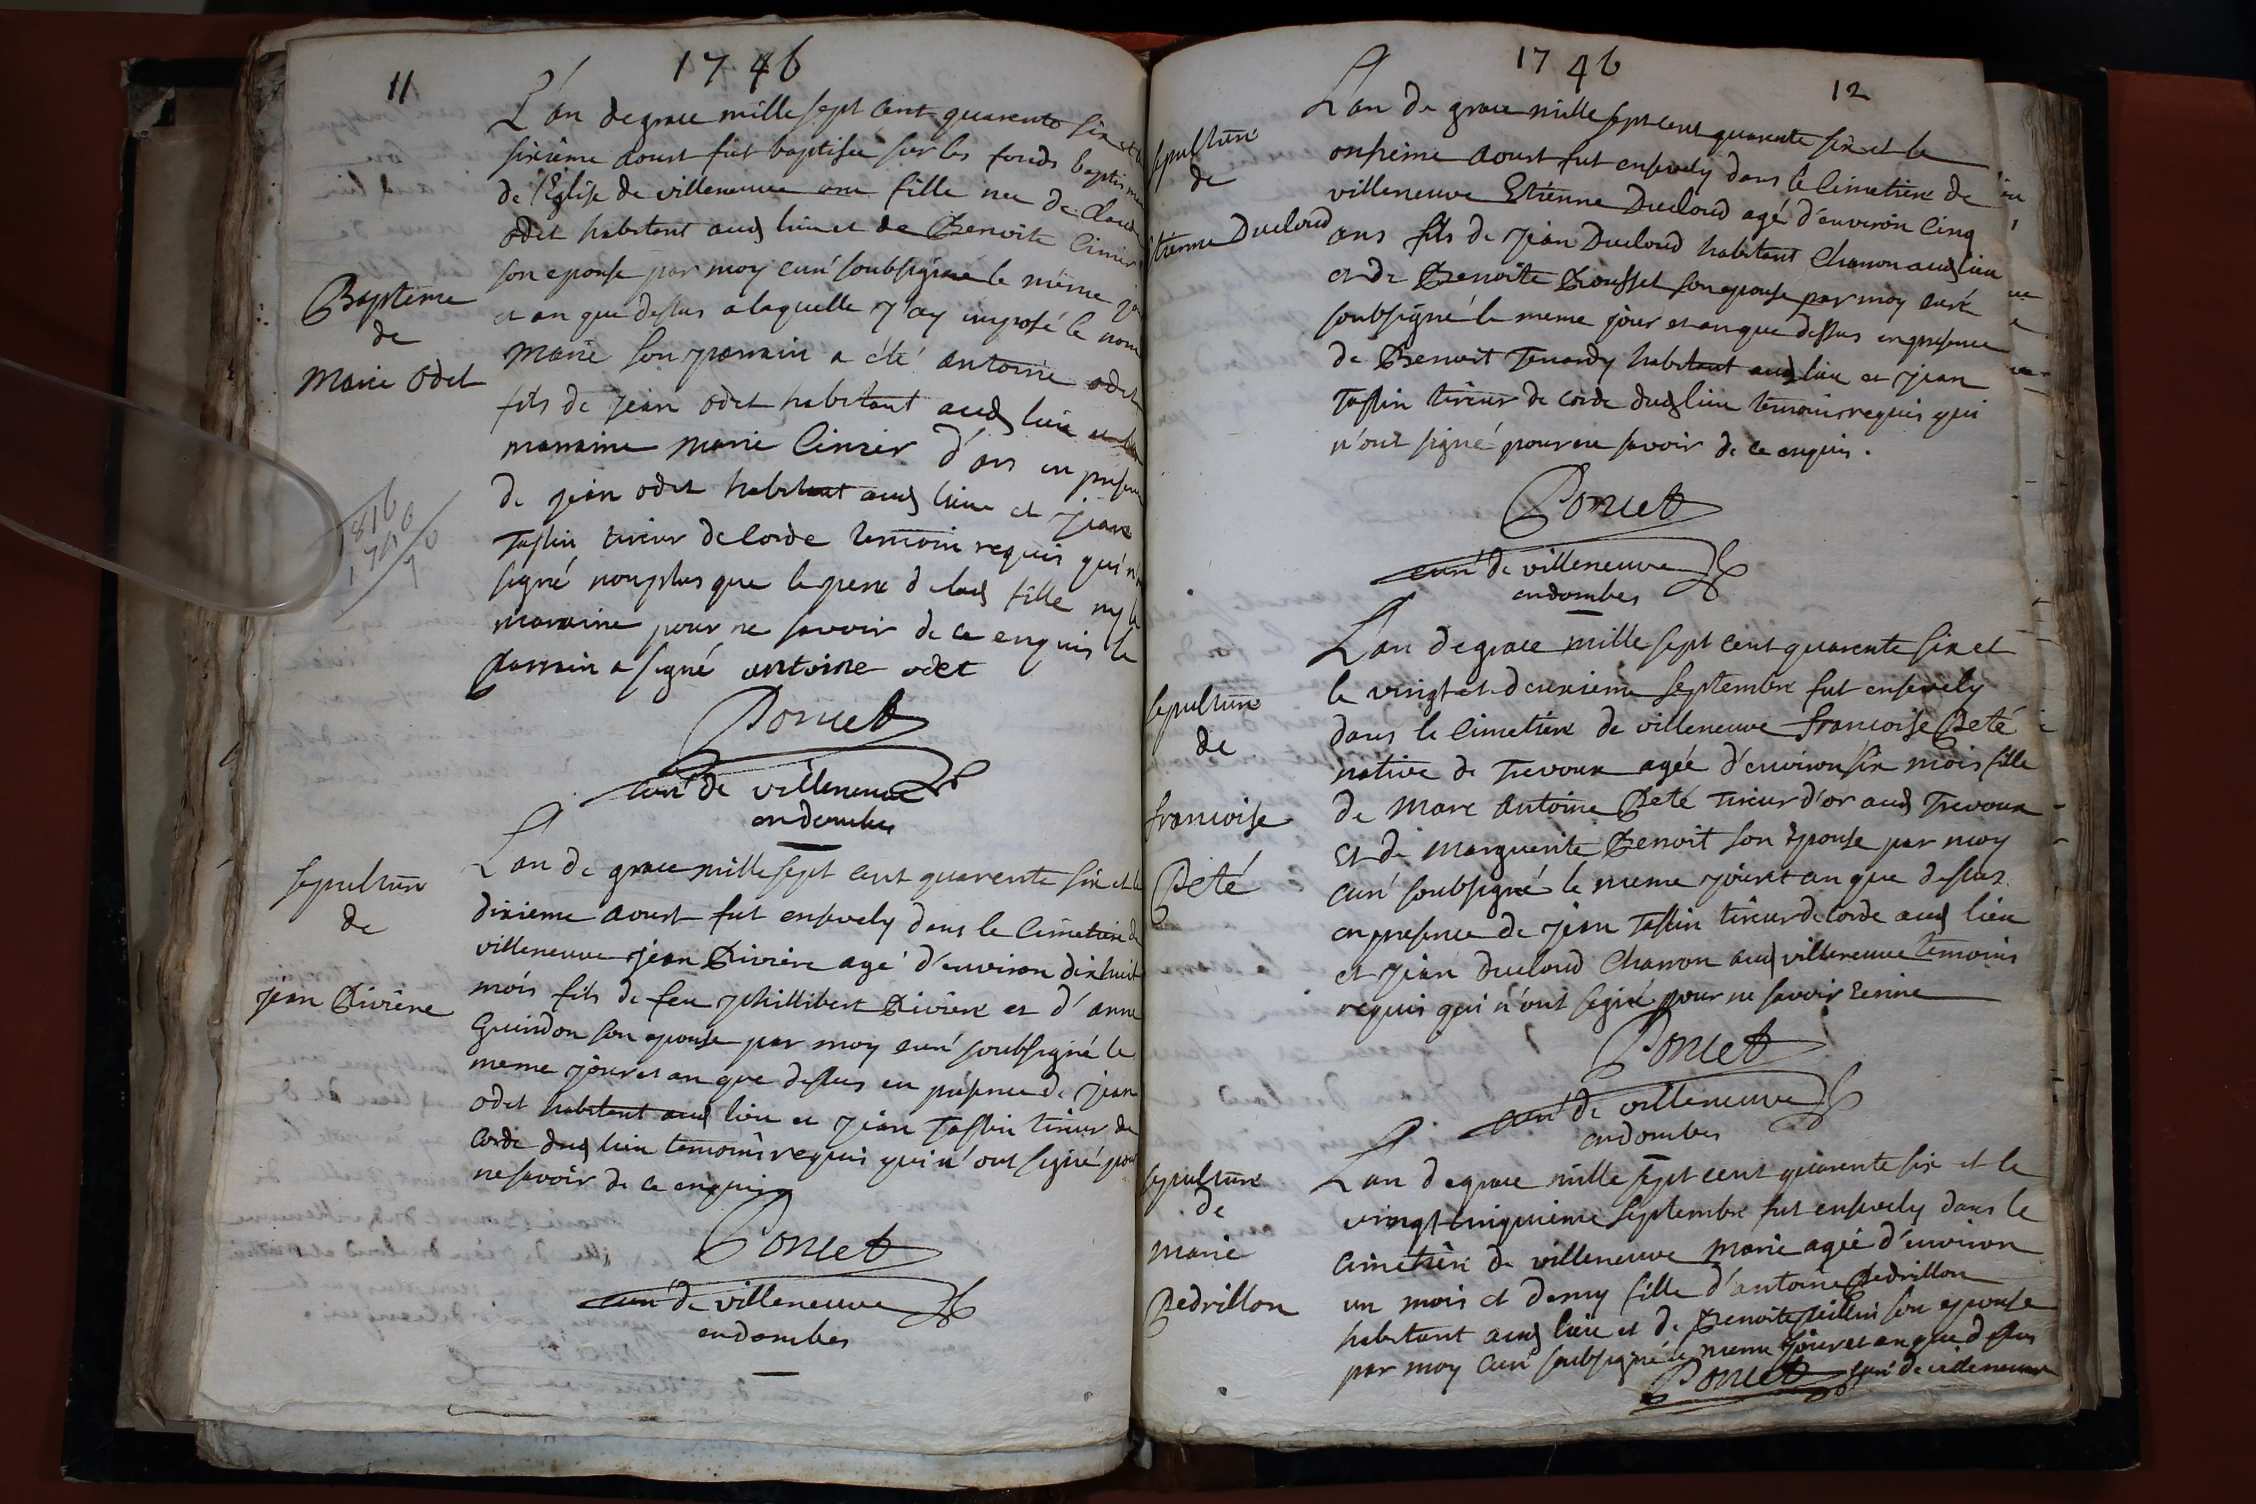 11
1746
L'an de grace mille sept cent quarente six et le
sixieme aoust fut baptisée sur les fonds baptismau
de l'Eglise de villeneuve une fille nee de Claude
odet habitant aud lieu et de Benoite Cinier
son epouse par moy curé soubsigné le même jour
et an que dessus a laquelle j'ay imposé le nom
Marie son parrain a été antoine odet
fils de jean odet habitant aud lieu
marraine Marie Cinier d'ars en presence
de jean odet habitant aud lieu et jean
Tassin tireur de corde temoin requis qui n'
signé nonplus que le pere de lad fille ny la
marraine pour ne savoir de ce enquis le
parrain a signé antoine odet
Baptême
de
Marie Odet
1816
Poncet
curé de villeneuve
en dombes
L'an de grace mille sept cent quarente six et le
dixieme aoust fut ensevely dans le Cimetiere de
villeneuve jean Riviere agé d'environ dixhuit
mois fils de feu philibert Riviere et d'anne
Guindon son epouse par moy curé soubsigné le
meme jour et an que dessus en présence de jean
odet habitant aud lieu et jean Tassin tireur de
corde dud lieu temoins requis qui n'ont signé pour
ne savoir de ce enquis
sepulture
de
jean Riviere
Poncet
curé de villeneuve
en dombes
1746
12
L'an de grace mille sept cent quarente six et le
onsieme aoust fut ensevely dans le Cimetiere de
villeneuve Etienne Ducloud agé d'environ Cinq
ans fils de jean Ducloud habitant Charron aud lieu
et de Benoite Rousset son epouse par moy curé
soubsigné le meme jour et an que dessus en presence
de Benoit Tenardy habitant aud lieu et jean
Tassin tireur de corde dud lieu temoins requis qui
n'ont signé pour ne savoir de ce enquis.
sepulture
de
Etienne Ducloud
Poncet
curé de villeneuve
en dombes
L'an de grace mille sept cent quarente six et
le vingt et deuxieme septembre fut ensevely
dans le Cimetiere de villeneuve francoise Peté
native de Trevoux agée d'environ six mois fille
de Marc Antoine Peté Tireur d'or aud Trevoux
et de Marguerite Benoit son Epouse par moy
curé soubsigné le meme jour et an que dessus
en presence de jean Tassin tireur de corde aud lieu
et jean ducloud Charron aud villeneuve temoins
requis qui n'ont signé pour ne savoir
sepulture
de
francoise
Peté
Poncet
curé de villeneuve
en dombes
L'an de grace mille sept cent quarente six et le
vingt cinquieme septembre fut ensevely dans le
Cimetiere de villeneuve Marie agée d'environ
un mois et demy fille d'antoine Pedrillon
habitant aud lieu et de Benoite son epouse
par moy curé soubsigné le meme jour et an que dessus
sepulture
de
Marie
Pedrillon
Poncet curé de villeneuve